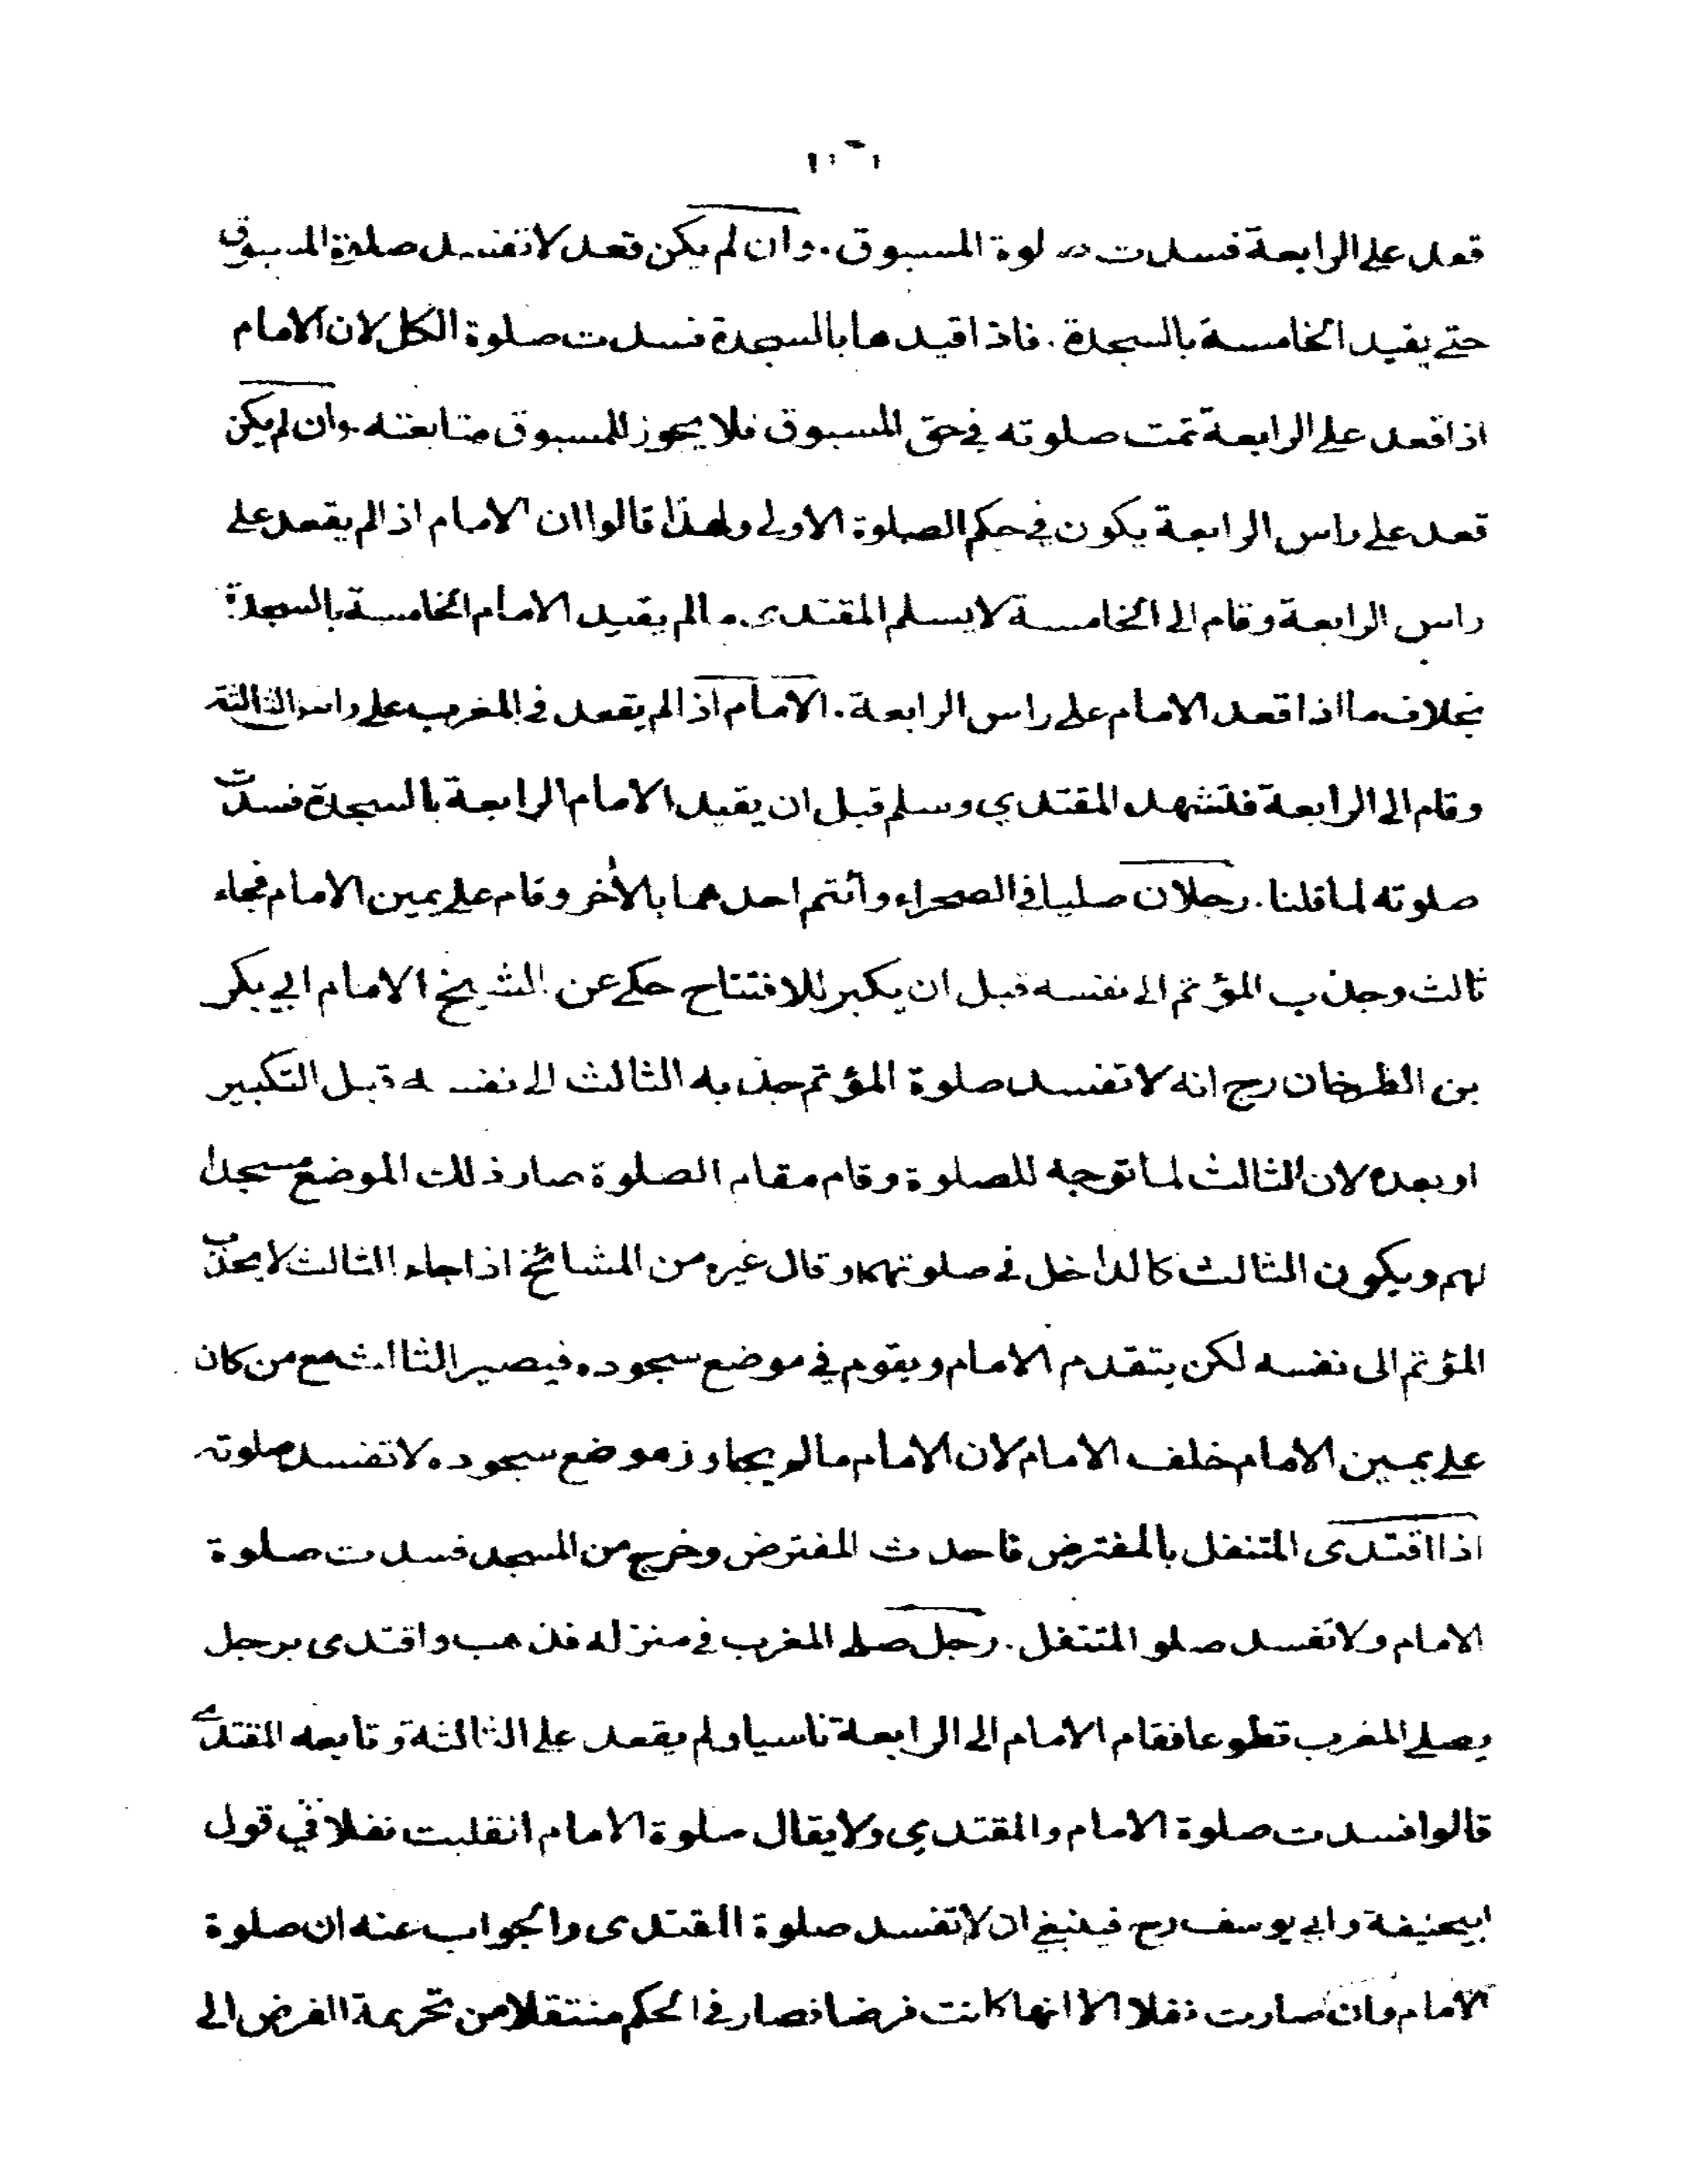 قعد على الرابعة فسدت صلوة المسبوق. وان لم يكن قعد لا تفسد صلوة المسبوق
حتى يقيد الخامسة بالسجدة. فاذا قيدها بالسجدة فسدت صلوة الكل لان الامام
اذا قعد على الرابعة تمت صلوته في حق المسبوق فلا يجوز للمسبوق متابعته. وان لم يكن
قعد على راس الرابعة يكون في حكم الصلوة الاولى ولهذا قالوا ان الامام اذا لم يقعد على
راس الرابعة وقام الى الخامسة لا يسلم المقتدى ما لم يقيد الامام الخامسة بالسجدة
بخلاف ما اذا قعد الامام على راس الرابعة. الامام اذا لم يقعد في المغرب على راس الثالثة
وقام الى الرابعة فتشهد المقتدي وسلم قبل ان يقيد الامام الرابعة بالسجدة فسدت
صلوته لما قلنا. رجلان صليا في الصحراء وأئتم احدهما بالأخر وقام على يمين الامام فجاء
ثالث وجذب المؤتم الى نفسه قبل ان يكبر للافتتاح حكى عن الشيخ الامام ابي بكر
بن الطرخان رح انه لا تفسد صلوة المؤتم جذبه الثالث الى نفسه قبل التكبير
او بعده لان الثالث لما توجه للصلوة وقام مقام الصلوة صار ذلك الموضع مسجدا
لهم ويكون الثالث كالداخل في صلوتهما وقال غيره من المشائخ اذا جاء الثالث لا يجذب
المؤتم الى نفسه لكن يتقدم الامام ويقوم في موضع سجوده فيصير الثالث مع من كان
على يمين الامام خلف الامام لان الامام ما لم يجاوز موضع سجوده لا تفسد صلوته
اذا اقتدى المتنفل بالمفترض فاحدث المفترض وخرج من المسجد فسدت صلوة
الامام ولا تفسد صلو المتنفل. رجل صلى المغرب في منزله فذهب واقتدى برجل
يصلى المغرب تطوعا فقام الامام الى الرابعة ناسيا ولم يقعد على الثالثة وتابعه المقتدي
قالوا فسدت صلوة الامام والمقتدي ولا يقال صلوة الامام انقلبت نفلا في قول
ابيحنيفة وابي يوسف رح فينبغي ان لا تفسد صلوة المقتدى والجواب عنه ان صلوة
الامام وان صارت نفلا الا انها كانت فرضا فصار في الحكم منتقلا من تحريمة الفرض الى